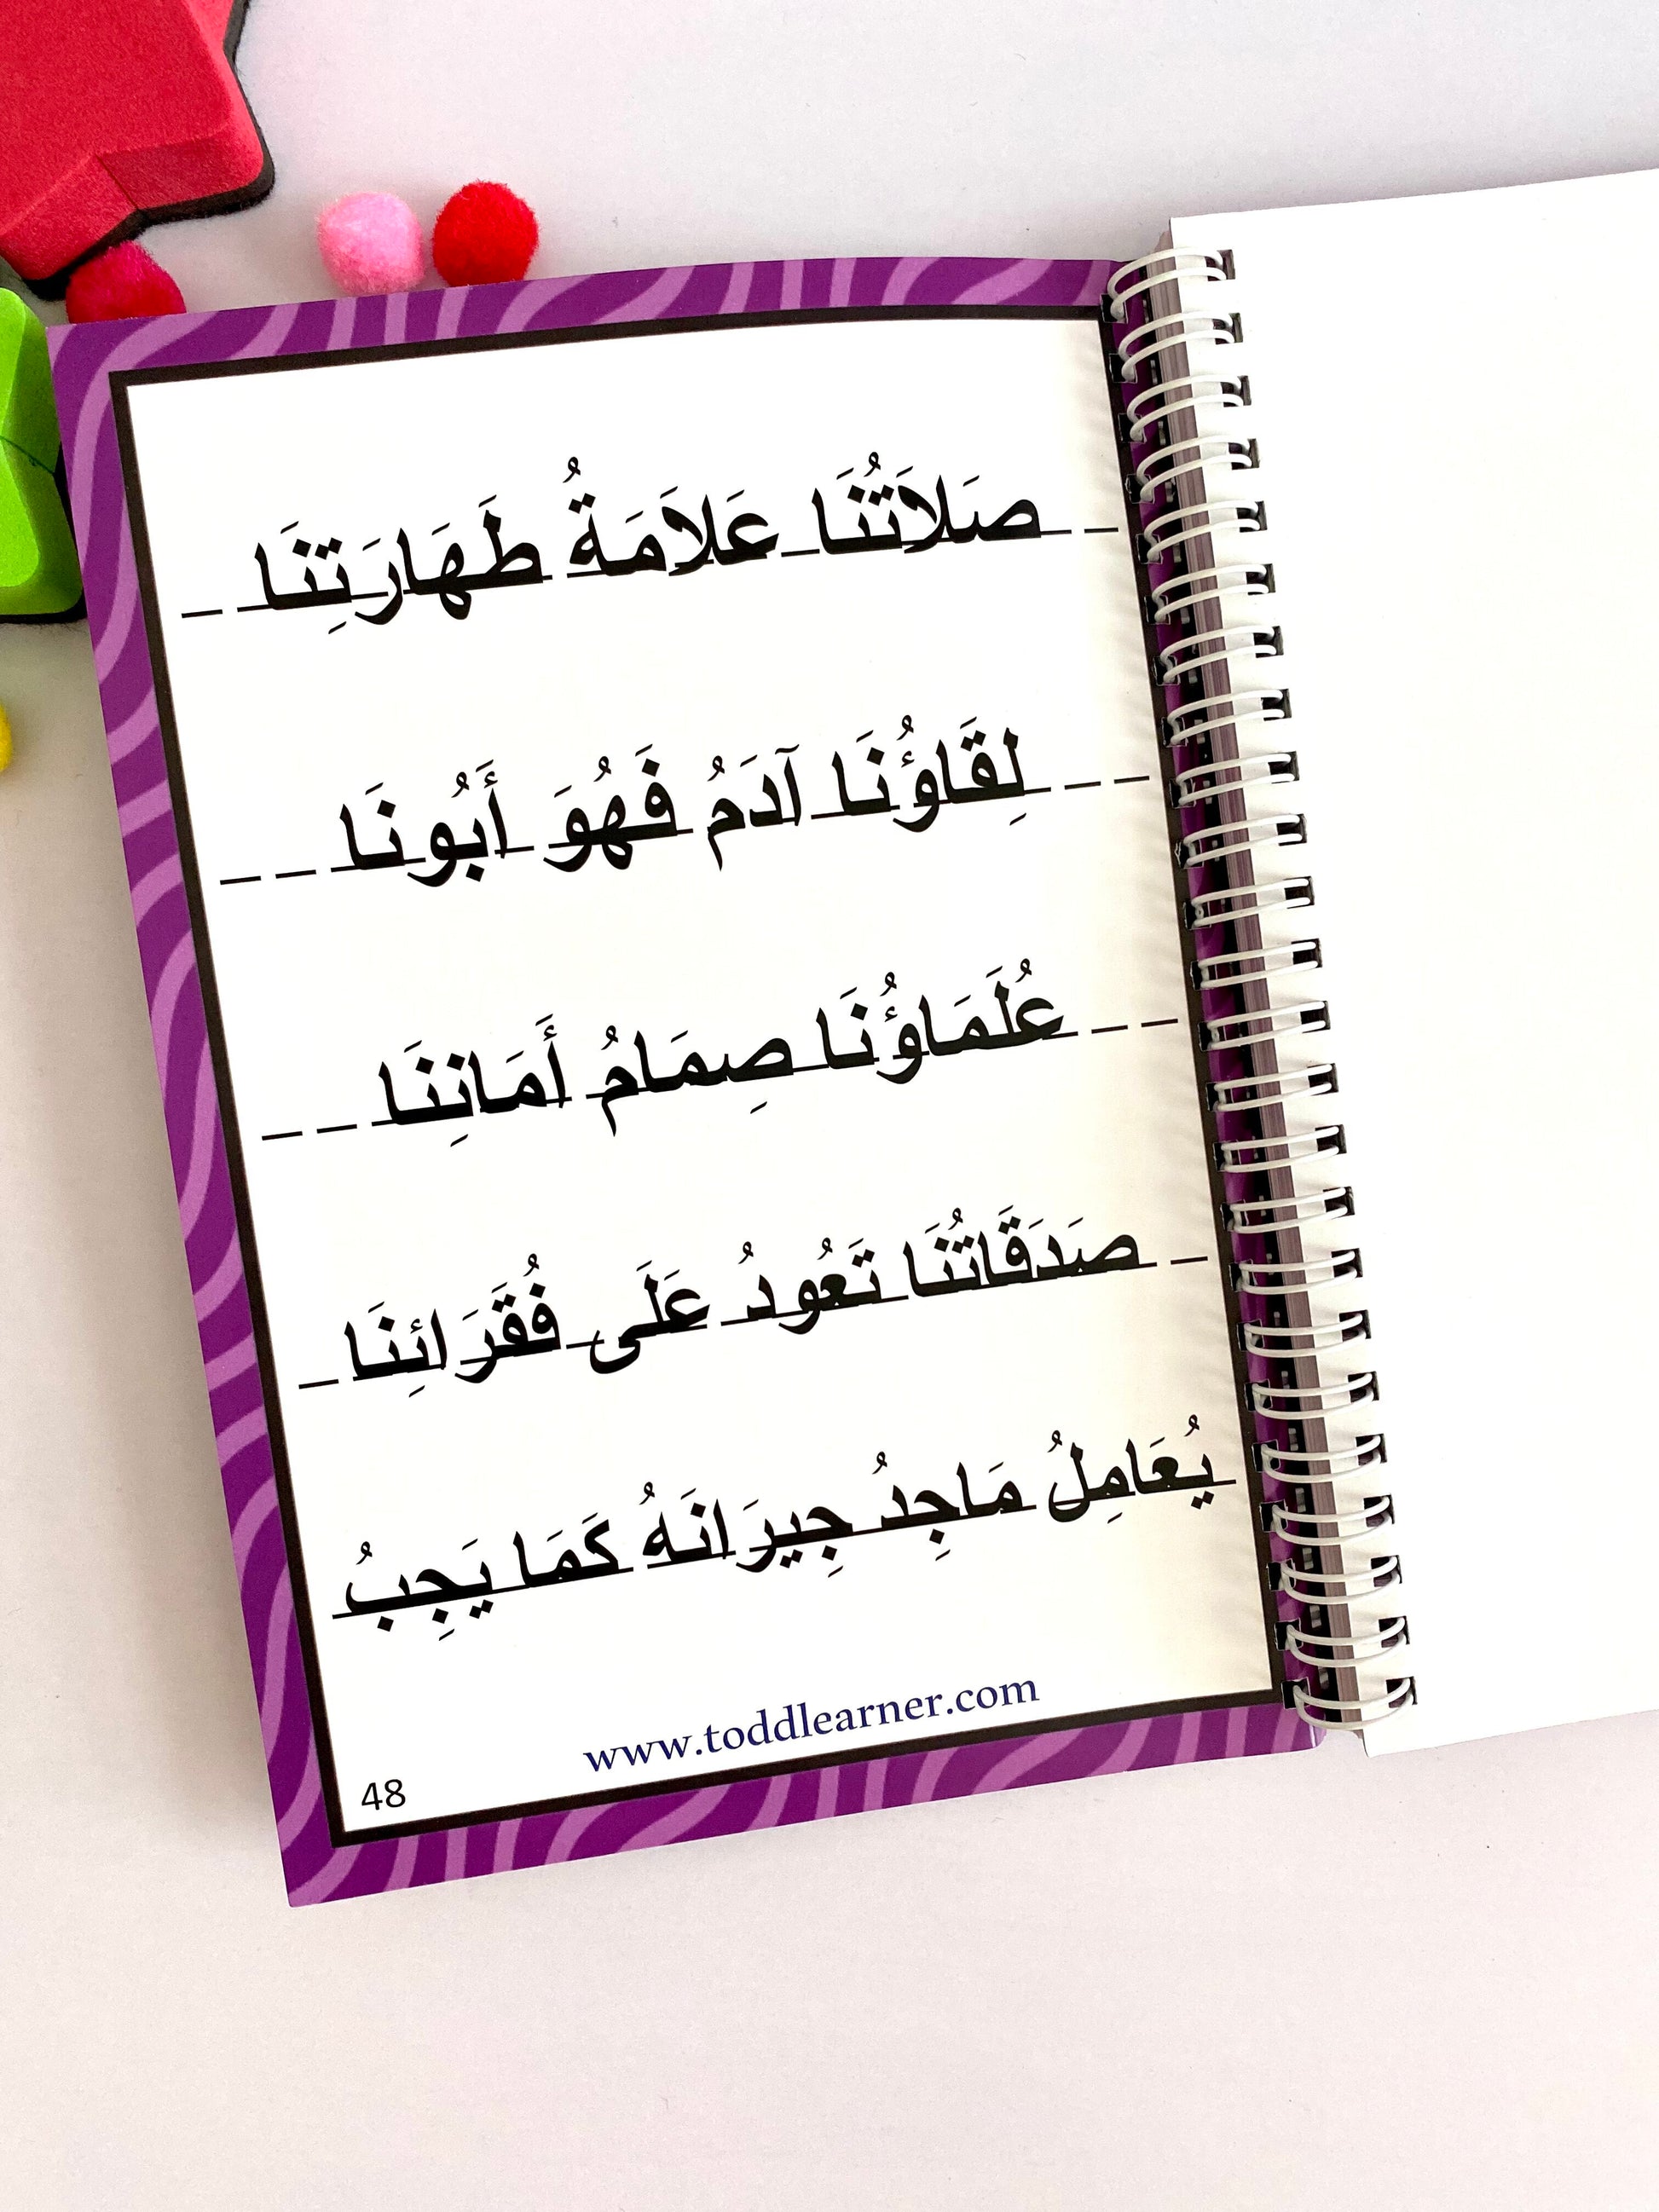 صَلاَتُنَا عَلاَمَةُ طَهَارَتِنَا
لِقَاؤُنَا آدَمُ فَهُوَ أَبُونَا
عُلَمَاؤُنَا صِمَامُ أَمَانِنَا
صَدَقَاتُنَا تَعُودُ عَلَى فُقَرَائِنَا
يُعَامِلُ مَاجِدُ جِيرَانَهُ كَمَا يَجِبُ
www.toddlearner.com
48